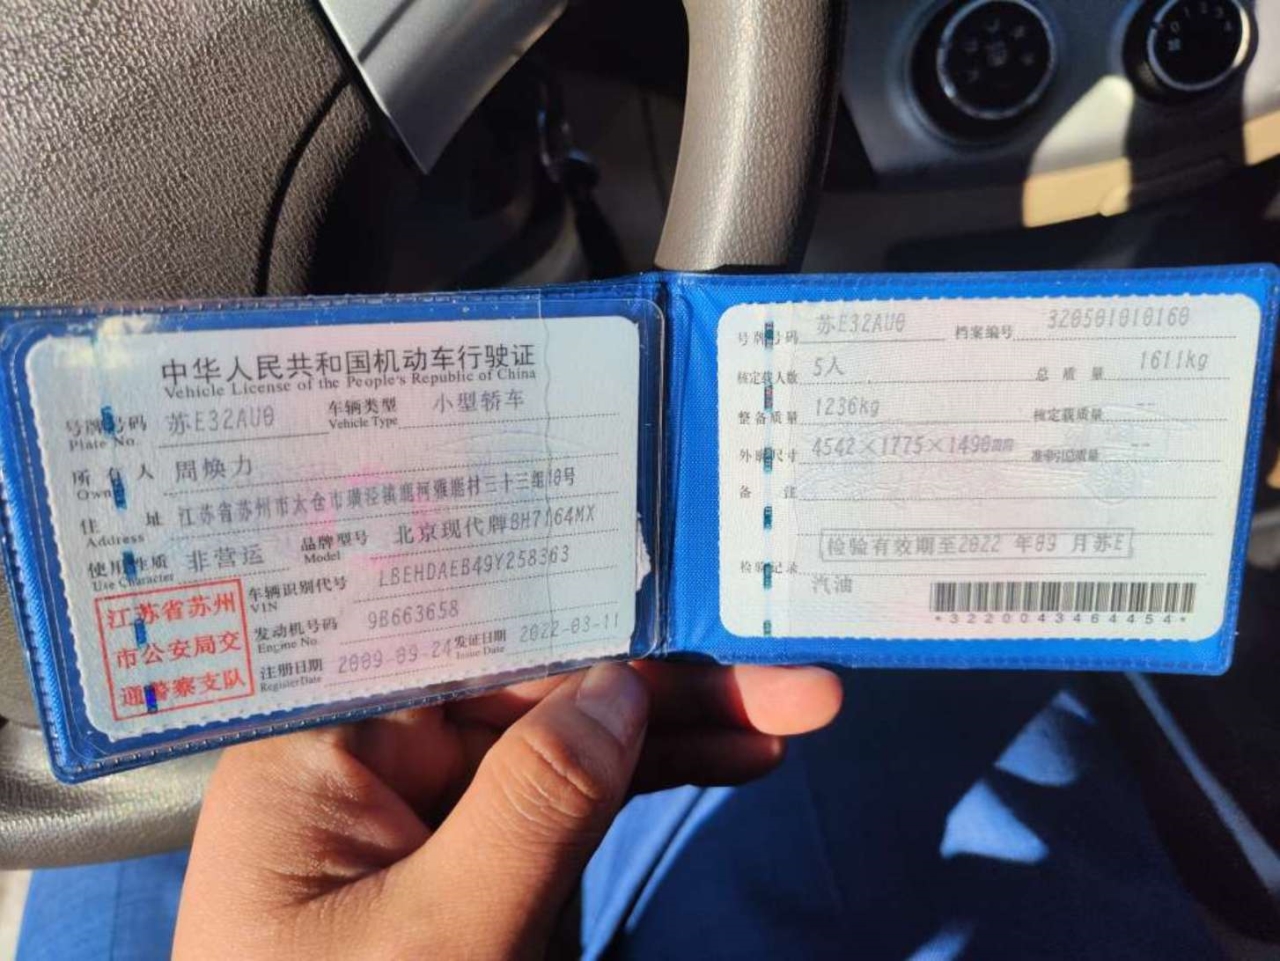 中华人民共和国机动车行驶证
Vehicle License of the People's Republic of China
号牌号码 苏E32AU0 车辆类型 小型轿车
Plate No. Vehicle Type
所有人 周焕力
Owner
住址 江苏省苏州市太仓市璜泾镇鹿河雅鹿村三十三组10号
Address
使用性质 非营运 品牌型号 北京现代牌BH7164MX
Use Character Model
江苏省苏州
市公安局交
通警察支队
车辆识别代号 LBEHDAEB49Y258363
VIN
发动机号码 9B663658
Engine No.
注册日期 2009-09-24 发证日期 2022-03-11
Register Date Issue Date
号牌号码 苏E32AU0 档案编号 320501010160
核定载人数 5人 总质量 1611kg
整备质量 1236kg 核定载质量 --
外廓尺寸 4542×1775×1490mm 准牵引总质量 --
备注
检验有效期至2022 年09 月苏E
检验记录
汽油
*3220043464454*